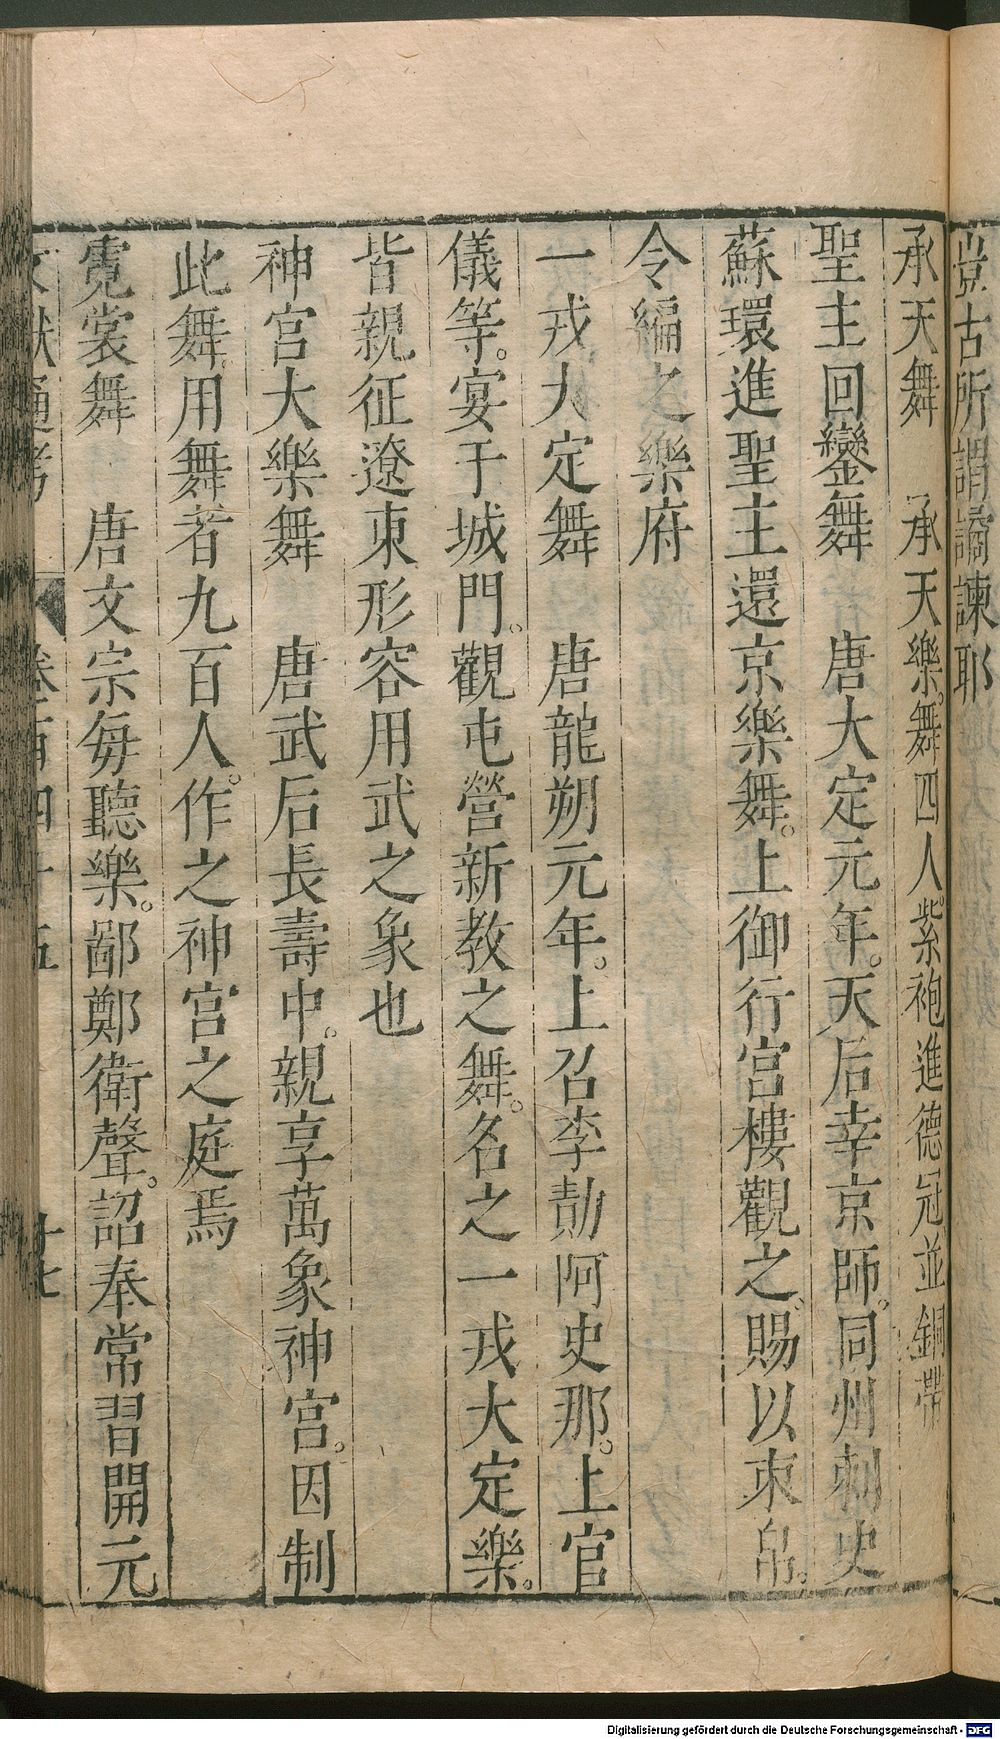 豈古所謂譎諫耶
承天舞　承天樂。舞四人。紫袍進德冠並銅帶
聖主回鑾舞　唐大定元年。天后幸京師。同州刺史
蘇環進聖主還京樂舞。上御行宮樓觀之。賜以束帛。
令編之樂府
一戎大定舞　唐龍朔元年。上召李勣阿史那。上官
儀等。宴于城門。觀屯營新教之舞。名之一戎大定樂。
皆親征遼東形容用武之象也
神宮大樂舞　唐武后長壽中。親享萬象神宮。因制
此舞。用舞者九百人。作之神宮之庭焉
霓裳舞　唐文宗每聽樂。鄙鄭衛聲。詔奉常習開元
文獻通考　卷百四十五　十七
Digitalisierung gefördert durch die Deutsche Forschungsgemeinschaft - DFG